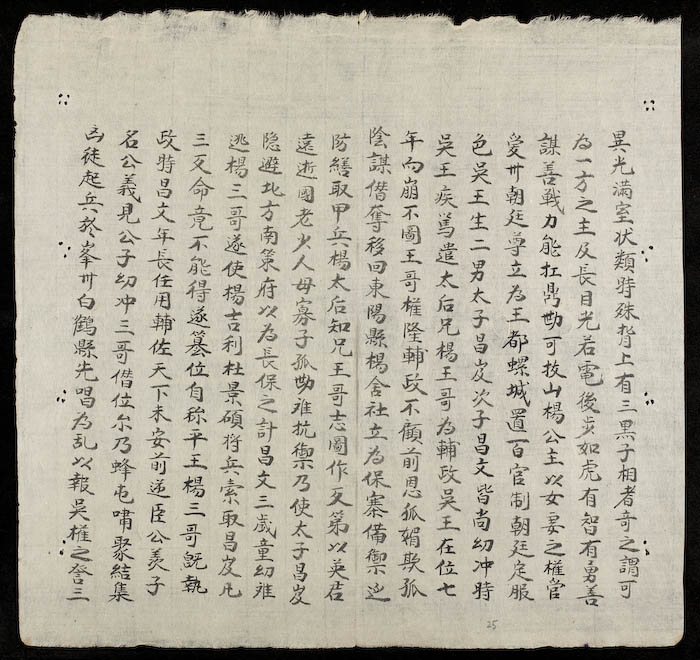 異光滿室狀類特殊背上有三黑子相者奇之謂可
為一方之主及長目光若電後步如虎有智有勇善
謀善戰力能扛鼎勐可拔山楊公主以女妻之權管
愛卅朝廷尊立為王都螺城置百官制朝廷定服
色吳王生二男太子昌岌次子昌文皆尚幼冲時
吳王疾篤遣太后兄楊王哥為輔政吳王在位七
年而崩不圖王哥權隆輔政不顧前恩狐媚欺孤
陰謀僭奪移回東陽縣楊舍社立為保寨備禦
防繕取甲兵楊太后知兄王哥志圖作歹第以英君
遠逝國老少人母寡子孤勐难抗禦乃使太子昌岌
隐避北方南策府以為長保之計昌文三歲童幼难
逃楊三哥遂使楊吉利杜景碩将兵索取昌岌凡
三歹命竟不能得遂篡位自称平王楊三哥既執
政特昌文年長任用輔佐天下未安前逆臣公羨子
名公義見公子幼冲三哥僭位尔乃蜂屯嘯聚結集
凶徒起兵於峯卅白鶴縣先唱為乱以報吳權之讐三
25